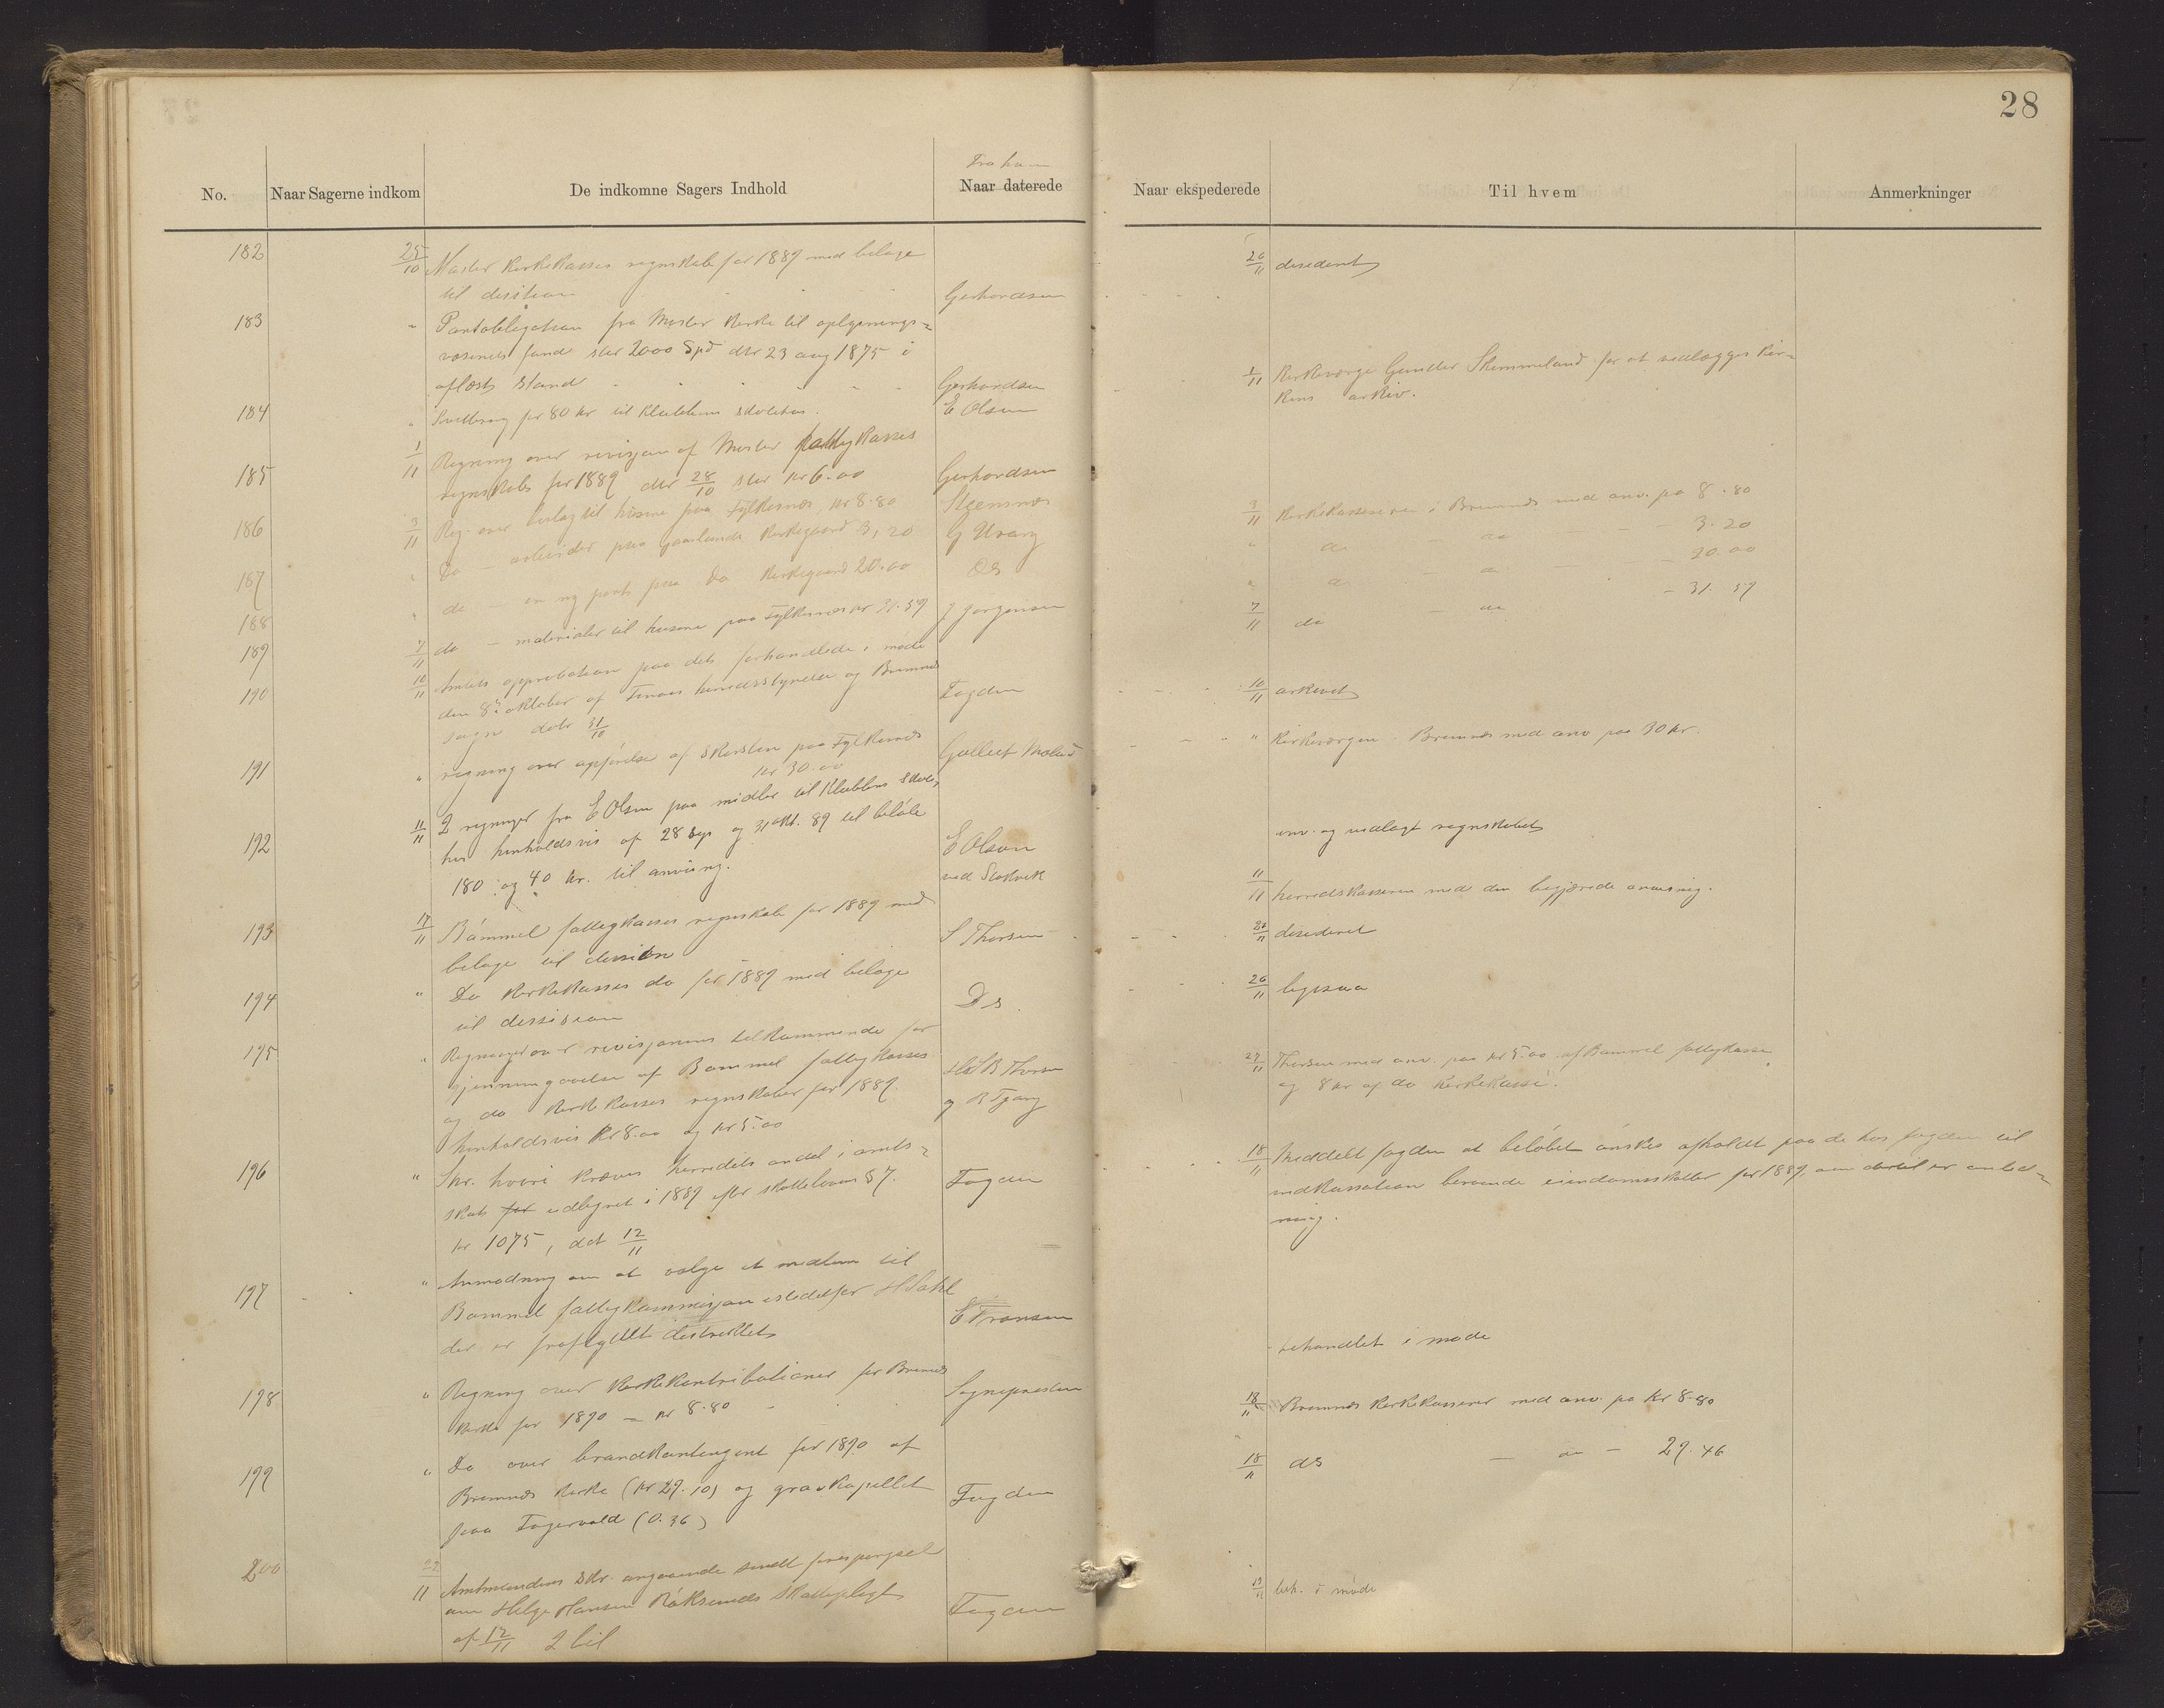 28
Fra hvem
No. Naar Sagerne indkom De indkomne Sagers Indhold Naar daterede
Naar ekspederede Til hvem Anmerkninger
182 25/10 Moster kirkekasses regnskab for 1889 med bilage
til desision Gerhardsen
20/11 desideret
183 " Pantobligation fra Moster kirke til oplysnings-
væsenets fund stor 2000 Spd dtr 23 aug 1875 i
aflæst stand Gerhardsen
1/11 Kirkeværge Gunder Skimmeland for at vedlægges kir-
kens arkiv.
184 " Kvittering for 80 kr til Klubben skolehus. E Olsen
185 1/11 Regning over revisjon af Moster fattigkasses
regnskab for 1889 dtr 28/10 stor kr 6.00 Gerhardsen
186 3/11 Reg. over beslag til husene paa Fylkesnes kr 8.80 Steensnæs
3/11 Kirkekassereren i Bremnes med anv. på 8.80
187 " Do — arbeider paa kirkegaard 3,20 G Urang
" do — do — 3.20
188 " do — en ny port paa Do kirkegaard 20.00 Ds
" do do — 20.00
189 7/11 do — materialer til husene paa Fylkesnes kr 31.59 J Jørgensen
7/11 do — do — 31.59
190 10/11 Amtets approbation paa det forhandlede i møde
den 8de oktober af Finaas herredsstyrelse og Bremnes
sogn datr 31/10 Fogden
10/11 arkivet
191 " regning over opførelse af skorsten paa Fylkesnes
kr 30.00 Gullert Moland
" Kirkeværgen i Bremnes med anv paa 30 kr.
192 11/11 2 regninger fra E Olsen paa midler til Klubbens skole-
hus henholdsvis af 28 Sep og 31 okt. 89 til beløb
180 og 40 kr. til anvisning. E Olsen
ved Siakvik
anv. og vedlagt regnskabet
11/11 herredskasseren med den begjærede anvisning.
193 17/11 Bømmel fattigkasses regnskab for 1889 med
bilage til desision S Thorsen
20/11 desideret
194 " Do kirkekasses do for 1889 med bilage
til desission Ds.
20/11 ligesaa
195 " Regninger over revisjonens tilkommende for
gjennemgaaelse af Bømmel fattigkasses
og do kirkekasses regnskaber for 1889.
henholdsvis kr 8.00 og kr 5.00
B Thorsen
og
27/11 Thorsen med anv. paa kr 5.00 af Bømmel fattigkasse
og 8 kr af do kirkekasse.
196 " Skr. hvori kræves herredets andel i amts-
skat for udlignet i 1889 efter skatteloven § 7.
kr 1075, dat 12/11 Fogden
18/11 Meddelt fogden at beløbet ønskes afholdt paa de hos fogden til
indkassation beroende eiendomsskatter for 1889, om dertil er anled-
ning.
197 " Anmodning om at vælge et medlem til
Bømmel fattigkommisjon istedetfor H Dahl
der er fraflyttet distriktet E Fransen
behandlet i møde
198 " Regning over kirkekontributioner for Bremnes
kirke for 1890 — kr 8.80 Sognepresten
18/11 Bremnes kirkekasserer med anv. på kr 8.80
199 " Do over brandkontingent for 1890 af
Bremnes kirke (kr 29.10) og gravkapellet
paa Fagervold (0.36) Fogden
18/11 ds — do — 29.46
200 22/11 Amtmandens Skr. angaaende sendt forespørgsel
om Helge Hansen Røksunds skattepligt
af 12/11 2 bil Fogden
19/11 beh. i møde